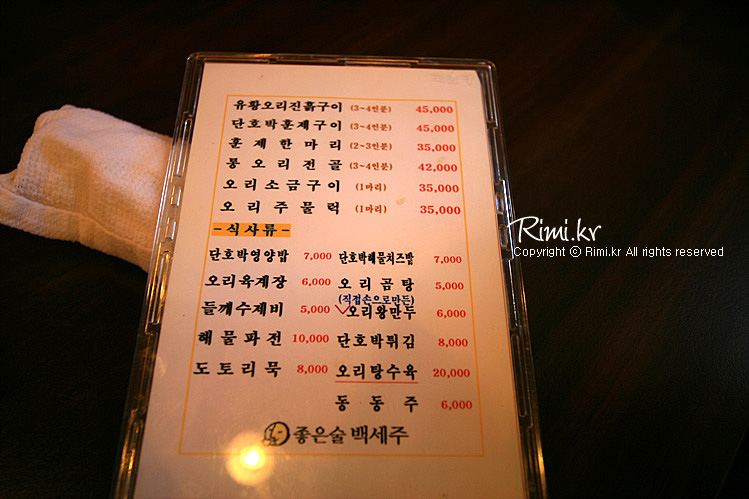 유황오리진흙구이 (3~4인분) 45,000
단호박훈제구이 (3~4인분) 45,000
훈제한마리 (2~3인분) 35,000
통오리전골 (3~4인분) 42,000
오리소금구이 (1마리) 35,000
오리주물럭 (1마리) 35,000
-식사류-
단호박영양밥 7,000 단호박해물치즈밥 7,000
오리육계장 6,000 오리곰탕 5,000
(직접손으로만든)
들깨수제비 5,000 오리왕만두 6,000
해물파전 10,000 단호박튀김 8,000
도토리묵 8,000 오리탕수육 20,000
동동주 6,000
좋은술 백세주
Rimi.kr
Copyright ⓒ Rimi.kr All rights reserved